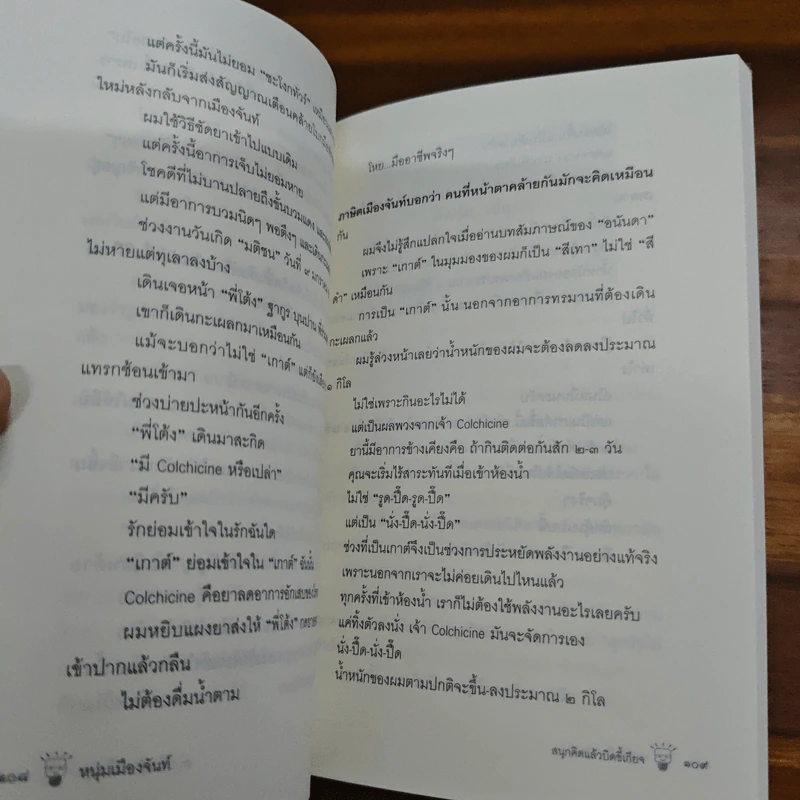 แต่ครั้งนี้มันไม่ยอม "ชะโงกทัวร์"
มันก็เริ่มส่งสัญญาณเตือนคล้าย
ใหม่หลังกลับจากเมืองจันท์
ผมใช้วิธีซัดยาเข้าไปแบบเดิม
แต่ครั้งนี้อาการเจ็บไม่ยอมหาย
โชคดีที่ไม่บานปลายถึงขั้นบวมแดง
แต่มีอาการบวมนิดๆ พอตึงๆ
ช่วงงานวันเกิด "มติชน" วันที่ ๙
ไม่หายแต่ทุเลาลงบ้าง
เดินเจอหน้า "พี่โต้ง" ฐากูร บุนปาน
เขาก็เดินกะเผลกมาเหมือนกัน
แม้จะบอกว่าไม่ใช่ "เกาต์"
แทรกซ้อนเข้ามา
ช่วงบ่ายปะหน้ากันอีกครั้ง
"พี่โต้ง" เดินมาสะกิด
"มี Colchicine หรือเปล่า"
"มีครับ"
รักย่อมเข้าใจในรักฉันใด
"เกาต์" ย่อมเข้าใจใน "เกาต์" ฉันนั้น
Colchicine คือยาลดอาการอักเสบ
ผมหยิบแผงยาส่งให้ "พี่โต้ง"
เข้าปากแล้วกลืน
ไม่ต้องดื่มน้ำตาม
๑๐๘ หนุ่มเมืองจันท์
โหย...มืออาชีพจริงๆ
ภาษิตเมืองจันท์บอกว่า คนที่หน้าตาคล้ายกันมักจะคิดเหมือน
กัน
ผมจึงไม่รู้สึกแปลกใจเมื่ออ่านบทสัมภาษณ์ของ "อนันดา"
เพราะ "เกาต์" ในมุมมองของผมก็เป็น "สีเทา" ไม่ใช่ "สี
ดำ" เหมือนกัน
การเป็น "เกาต์" นั้น นอกจากอาการทรมานที่ต้องเดิน
กะเผลกแล้ว
ผมรู้ล่วงหน้าเลยว่าน้ำหนักของผมจะต้องลดลงประมาณ
๑ กิโล
ไม่ใช่เพราะกินอะไรไม่ได้
แต่เป็นผลพวงจากเจ้า Colchicine
ยานี้มีอาการข้างเคียงคือ ถ้ากินติดต่อกันสัก ๒-๓ วัน
คุณจะเริ่มไร้สาระทันทีเมื่อเข้าห้องน้ำ
ไม่ใช่ "รูด-ปื๊ด-รูด-ปื๊ด"
แต่เป็น "นั่ง-ปื๊ด-นั่ง-ปื๊ด"
ช่วงที่เป็นเกาต์จึงเป็นช่วงการประหยัดพลังงานอย่างแท้จริง
เพราะนอกจากเราจะไม่ค่อยเดินไปไหนแล้ว
ทุกครั้งที่เข้าห้องน้ำ เราก็ไม่ต้องใช้พลังงานอะไรเลยครับ
แค่ทิ้งตัวลงนั่ง เจ้า Colchicine มันจะจัดการเอง
นั่ง-ปื๊ด-นั่ง-ปื๊ด
น้ำหนักของผมตามปกติจะขึ้น-ลงประมาณ ๒ กิโล
สนุกคิดแล้วบิดขี้เกียจ ๑๐๙